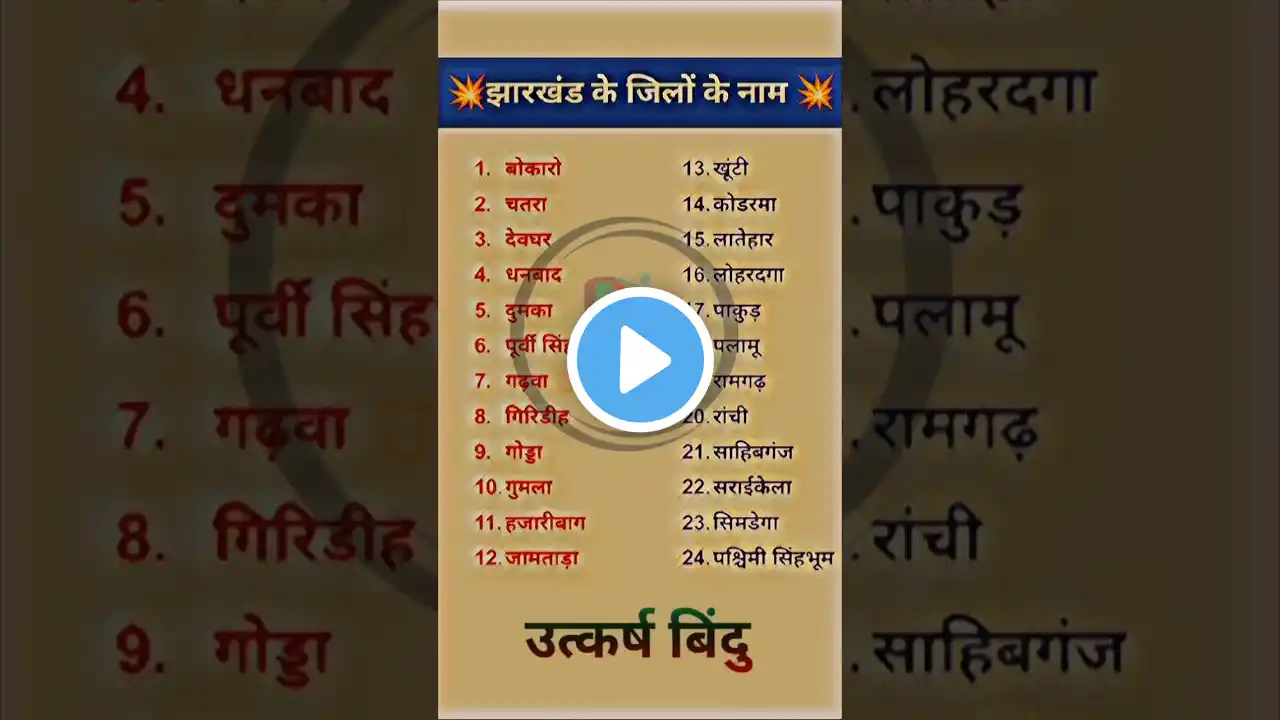 💥झारखंड के जिलों के नाम 💥
1. बोकारो
2. चतरा
3. देवघर
4. धनबाद
5. दुमका
6. पूर्वी
7. गढ़वा
8. गिरिडीह
9. गोड्डा
10. गुमला
11. हजारीबाग
12. जामताड़ा
13. खूंटी
14. कोडरमा
15. लातेहार
16. लोहरदगा
17. पाकुड़
पलामू
रामगढ़
20. रांची
21. साहिबगंज
22. सराईकेला
23. सिमडेगा
24. पश्चिमी सिंहभूम
उत्कर्ष बिंदु
4. धनबाद
5. दुमका
6. पूर्वी सिंह
7. गढ़वा
8. गिरिडीह
9. गोड्डा
लोहरदगा
पाकुड़
पलामू
रामगढ़
रांची
साहिबगंज